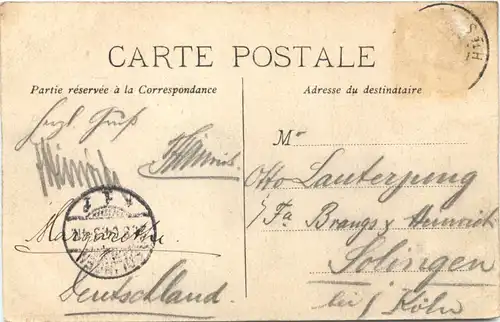 CARTE POSTALE
Partie réservée à la Correspondance
Adresse du destinataire
Herzl. Gruß
Heinrichs
Margarethe
Deutschland.
M r
Otto Lauterjung
i/Fa Brangs & Heinrich
Solingen
bei / Köln